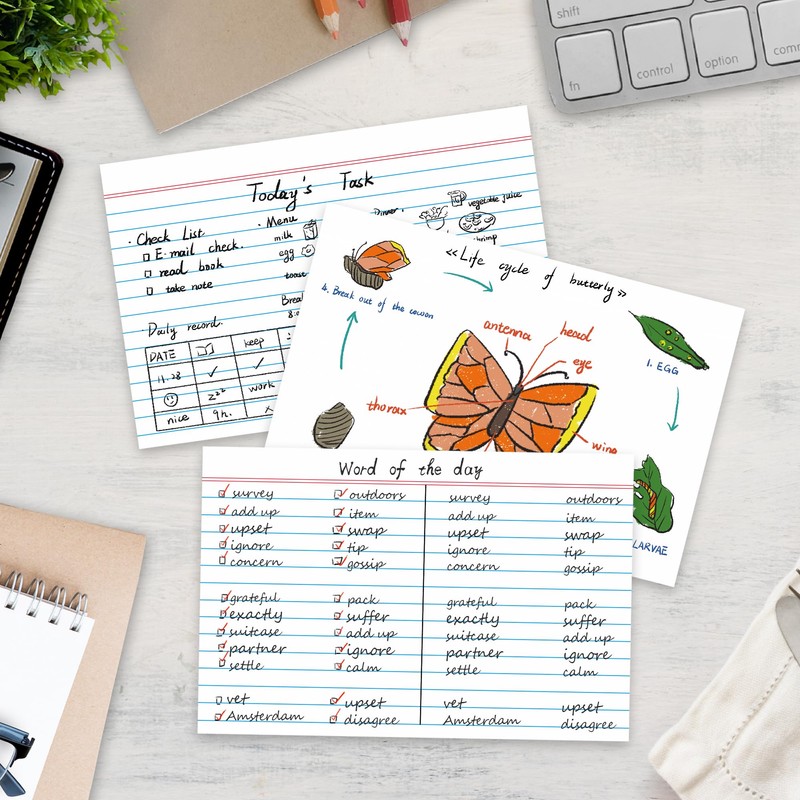 shift
fn
control
option
Today's Task
· Check List
E-mail check.
read book
take note
· Menu
milk
egg
toast
Dinner.
vegetable juice
Daily record.
DATE keep
11.28 ✓ ✓
zzz work
nice 9h.
«Life cycle of butterly»
4. Break out of the cocoon
1. EGG
antenna
head
eye
thorax
wing
LARVAE
Word of the day
survey outdoors survey outdoors
add up item add up item
upset swap upset swap
ignore tip ignore tip
concern gossip concern gossip
grateful pack grateful pack
exactly suffer exactly suffer
suitcase add up suitcase add up
partner ignore partner ignore
settle calm settle calm
vet upset vet upset
Amsterdam disagree Amsterdam disagree